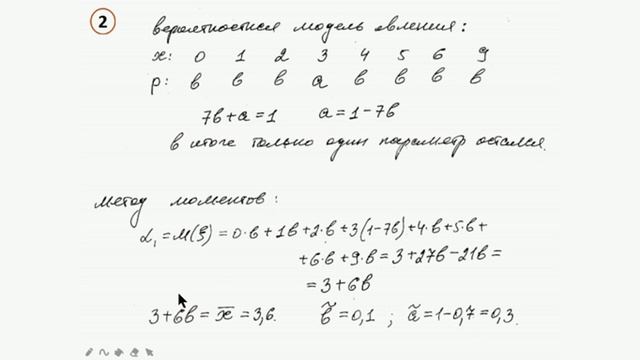 2
вероятностная модель явления:
x: 0 1 2 3 4 5 6 9
p: в в в a в в в в
7в+a=1 a=1-7в
в итоге только один параметр остался.
метод моментов:
α₁=M(ξ)=0·в+1в+2·в+3(1-7в)+4·в+5·в+
+6·в+9·в=3+27в-21в=
=3+6в
3+6в=x̅=3,6. в̃=0,1; ã=1-0,7=0,3.